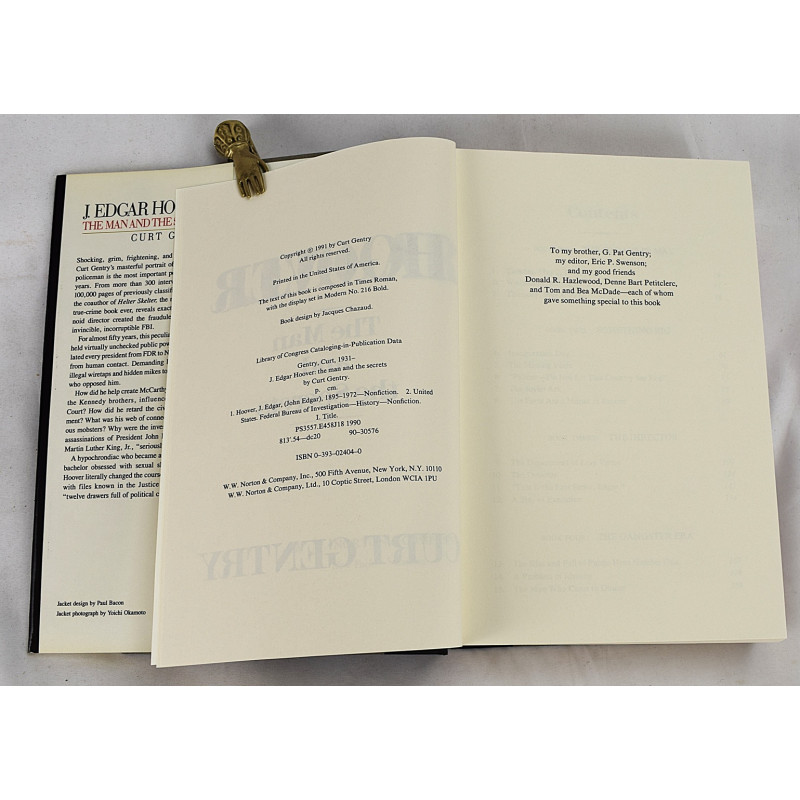 J. EDGAR HO
THE MAN AND THE S
CURT G
Shocking, grim, frightening, and
Curt Gentry's masterful portrait of
policeman is the most important p
years. From more than 300 interv
100,000 pages of previously classif
the coauthor of Helter Skelter, the
true-crime book ever, reveals exact
noid director created the fraudule
invincible, incorruptible FBI.
For almost fifty years, this peculia
held virtually unchecked public pow
lated every president from FDR to N
from human contact. Demanding
illegal wiretaps and hidden mikes to
who opposed him.
How did he help create McCarthy
the Kennedy brothers, influence
Court? How did he retard the civ
ment? What was his web of connec
ous mobsters? Why were the inves
assassinations of President John
Martin Luther King, Jr., "seriously
A hypochondriac who became a
bachelor obsessed with sexual s
Hoover literally changed the course
with files known in the Justice
"twelve drawers full of political c
Jacket design by Paul Bacon
Jacket photograph by Yoichi Okamoto
Copyright © 1991 by Curt Gentry
All rights reserved.
Printed in the United States of America.
The text of this book is composed in Times Roman,
with the display set in Modern No. 216 Bold.
Book design by Jacques Chazaud.
Library of Congress Cataloging-in-Publication Data
Gentry, Curt, 1931–
J. Edgar Hoover: the man and the secrets
by Curt Gentry.
p. cm.
1. Hoover, J. Edgar, (John Edgar), 1895–1972—Nonfiction. 2. United
States. Federal Bureau of Investigation—History—Nonfiction.
I. Title.
PS3557.E458J18 1990
813'.54—dc20 90-30576
ISBN 0-393-02404-0
W.W. Norton & Company, Inc., 500 Fifth Avenue, New York, N.Y. 10110
W.W. Norton & Company, Ltd., 10 Coptic Street, London WC1A 1PU
To my brother, G. Pat Gentry;
my editor, Eric P. Swenson;
and my good friends
Donald R. Hazlewood, Denne Bart Petitclerc,
and Tom and Bea McDade—each of whom
gave something special to this book